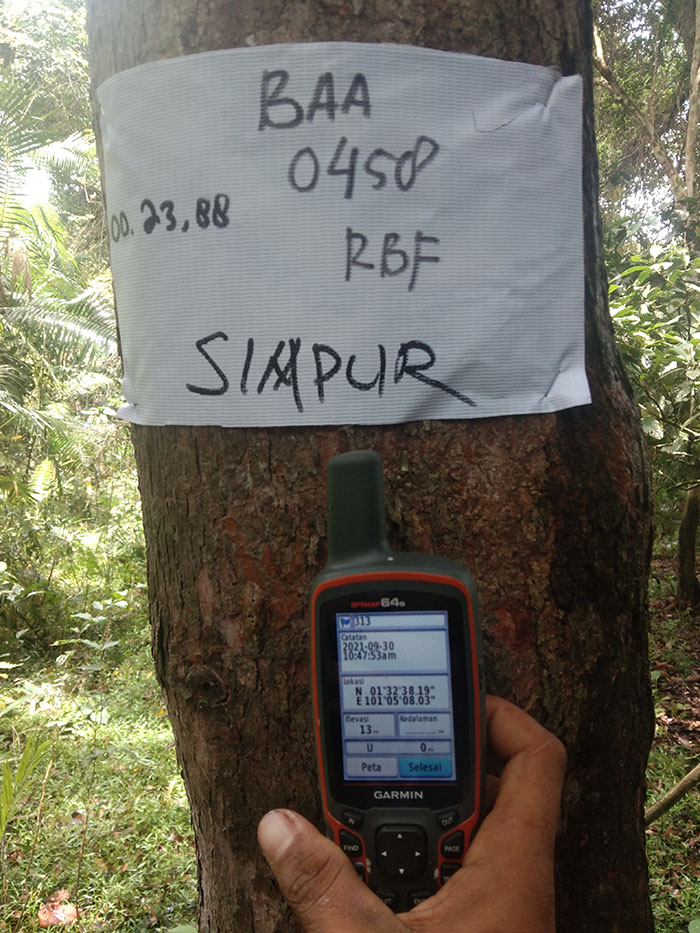 BAA
0458
00.23,88
RBF
SIMPUR
GPSMAP 64s
313
Catatan
2021-09-30
10:47:53am
Lokasi
N 01°32'38.19"
E 101°05'08.03"
Elevasi Kedalaman
13m
U 0m
Peta Selesai
GARMIN
IN OUT
FIND PAGE